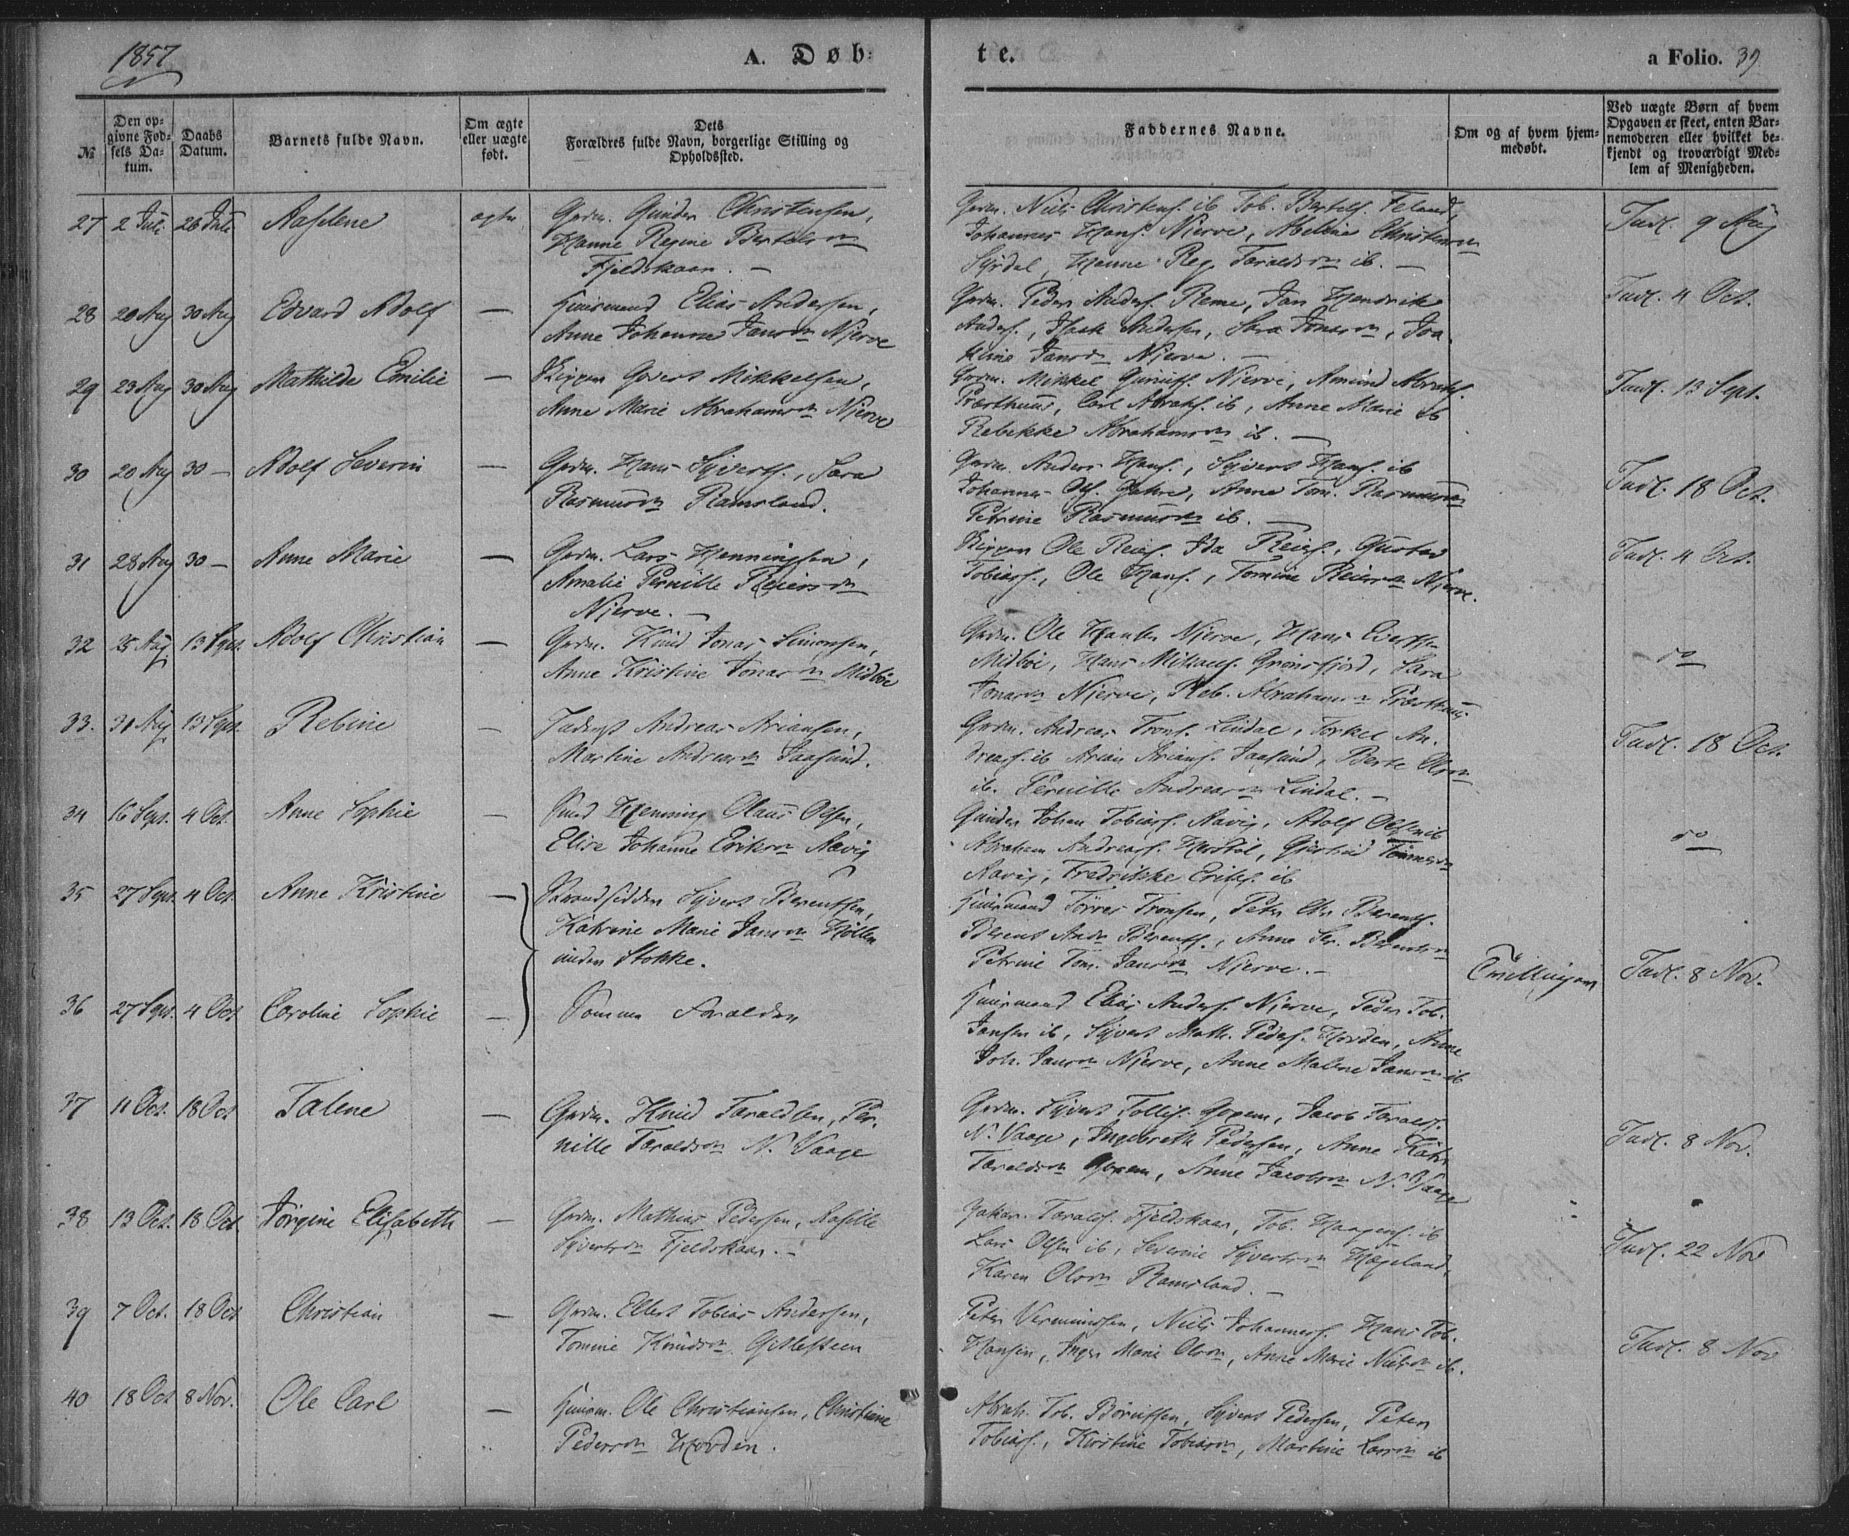 1857
A. Døb-
te.
a Folio. 39
№
Den op-
givne Fød-
sels Da-
tum.
Daabs
Datum.
Barnets fulde Navn.
Om ægte
eller uægte
født.
Dets
Forældres fulde Navn, borgerlige Stilling og
Opholdssted.
Faddernes Navne.
Om og af hvem hjem-
medøbt.
Ved uægte Børn af hvem
Opgaven er skeet, enten Bar-
nemoderen eller hvilket be-
kjendt og troværdigt Med-
lem af Menigheden.
27 2 Juli 26 Juli Aaselene ægte
Grdm. Gunder Christensen,
Hanne Regine Bertels
Fjeldskaar. —
Grdm. Niels Christens. ib Tob. Bertels. Feland,
Johannes Hans. Njerve,
Hanne Reg. ib. —
Indl. 9 Aug
28 20 Aug 30 Aug Edvard Adolf —
Huusmand Elias Andersen,
Anne Johanne Jansdn Njerve
Grdm. Peder Anders. Reme, Jan Hendrik
Anders., Andersen, Sara, Joa-
kine Jansdn Njerve. —
Indl. 4 Oct.
29 23 Aug 30 Aug Mathilde Emilie —
Skipper Govert Mikkelsen,
Anne Marie Abrahamsdn Njerve
Grdm. Mikkel Njerve, Amund Abrahs.
Præsthuus, Carl Abrahs. ib, Anne Marie ib
Rebekke Abrahamsdn ib. —
Indl. 13 Sept.
30 20 Aug 30 — Adolf Severin —
Grdm. Hans Syverts., Sara
Rasmusdn Ramsland.
Grdm. Anders Hans., Syvert Hans. ib
Johannes Ols., Anne Tom. Rasmusdn
Petrine Rasmusdn ib. —
Indl. 18 Oct.
31 28 Aug 30 — Anne Marie —
Grdm. Lars Henningsen,
Amalie Pernille Reiersdn
Njerve. —
Skipper Ole Reiers. Ida Reiers., Gustav
Tobias., Ole Hans., Tomine Reiersdn Njerve.
Indl. 4 Oct.
32 25 Aug 13 Sept. Adolf Christian —
Grdm. Knud Jonas Simonsen,
Anne Kristine Jonasdn Midbøe
Grdm. Ole Njerve, Hans Evertsen
Midbøe, Hans Grønsfjord, Sara
Jonasdn Njerve, Reb. Abrahamsdn Præsthuus
do
33. 31 Aug 13 Sept. Rebine —
Inderst Andreas Ariansen,
Martine Andreasdn Jaasund.
Grdm. Andreas Trons. Lindal, Torkel An-
dreas. ib Arian Arians. Jaasund, Berte Olsdn
ib. Pernille Andreasdn Lindal. —
Indl. 18 Oct.
34 16 Sept. 4 Oct. Anne Sophie —
Henning Olaus Olsen,
Elise Johanne Eriksdn Aavig
Gunder Johan Tobias. Aavig, Adolf Olsen ib
Abraham Andreas., Gjertrud
Aavig, Fredrikke Eriks. ib
do
35 27 Sept. 4 Oct. Anne Kristine —
Strandsidder Syvert Berentsen,
Katrine Marie Jansdn Høllen
under Stokke.
Huusmand Tørres Tronsen, Peter Chr. Berents.
Berent Andr. Berents., Anne Ser. Berentsdn
Petrine Tom. Jansdn Njerve. —
Tvillinger
Indl. 8 Nov.
36 27 Sept. 4 Oct Caroline Sophie —
Samme Forældre
Huusmand Elias Anders. Njerve, Peder Tob.
Jansen ib, Syvert Math. Peders. Horden, Anne
Joh. Jansdn Njerve, Anne Malene Jansdn ib
37 11 Oct. 18 Oct Talene —
Grdm. Knud Taraldsen, Per-
nille Taraldsdn N. Vaage
Grdm. Syvert, Jacob Taralds.
N. Vaage, Ingebreth Pedersen, Anne Katr.
Taraldsdn, Anne Jacobsdn N. Vaage
Indl. 8 Nov.
38 13 Oct. 18 Oct Jørgine Elisabeth —
Grdm. Mathias Pedersen, Aasille
Syvertsdn Fjeldskaar. —
Taralds. Fjeldskaar, Tob. ib
Lars Olsen ib, Severine Syvertsdn Hægeland,
Karen Olsdn Ramsland. —
Indl. 22 Nov
39 7 Oct. 18 Oct Christian —
Grdm. Ellert Tobias Andersen,
Tomine Knudsdn Gitlesteen
Peter Vermundsen, Niels Johannes. Hans Tob.
Hansen, Inger Marie Olsdn, Anne Marie Nielsdn ib.
Indl. 8 Nov
40 18 Oct 8 Nov. Ole Carl —
Huusm. Ole Christiansen, Christiane
Pedersdn Horden.
Abrah. Tob. Børufsen, Syvert Pedersen, Peter
Tobias., Kirstine Tobiasdn, Martine Larsdn ib